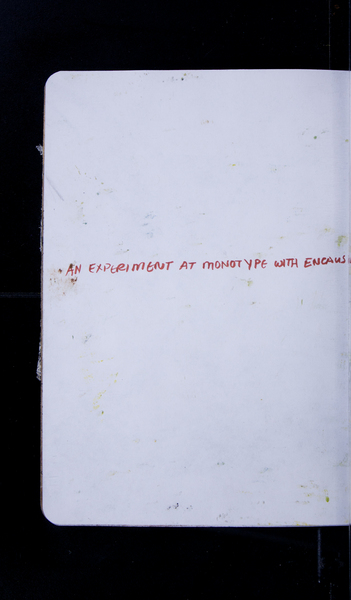 AN EXPERIMENT AT MONOTYPE WITH ENCAUS